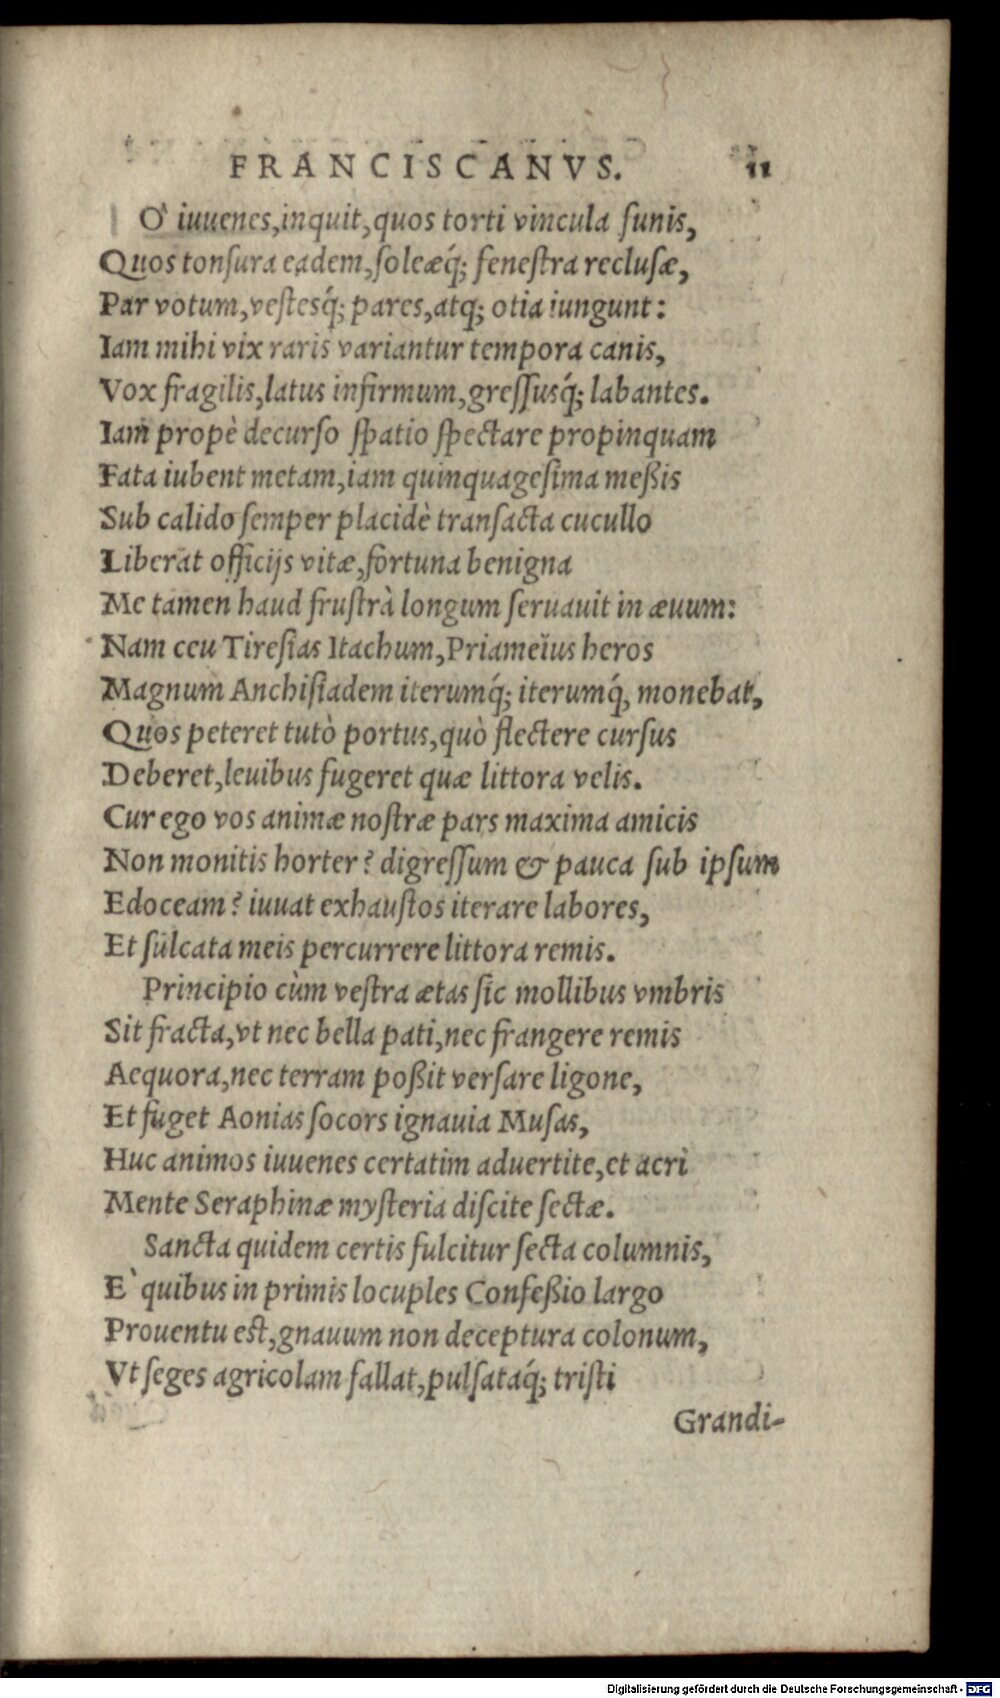 FRANCISCANVS. 11
O' iuuenes, inquit, quos torti vincula funis,
Quos tonsura eadem, soleæq́; fenestra reclusæ,
Par votum, vestesq́; pares, atq; otia iungunt:
Iam mihi vix raris variantur tempora canis,
Vox fragilis, latus infirmum, gressusq́; labantes.
Iam propè decurso spatio spectare propinquam
Fata iubent metam, iam quinquagesima meßis
Sub calido semper placidè transacta cucullo
Liberat officijs vitæ, fortuna benigna
Me tamen haud frustrà longum seruauit in æuum:
Nam ceu Tiresias Itachum, Priameïus heros
Magnum Anchisiadem iterumq́; iterumq́, monebat,
Quos peteret tutò portus, quò flectere cursus
Deberet, leuibus fugeret quæ littora velis.
Cur ego vos animæ nostræ pars maxima amicis
Non monitis horter? digressum & pauca sub ipsum
Edoceam? iuuat exhaustos iterare labores,
Et sulcata meis percurrere littora remis.
Principio cùm vestra ætas sic mollibus vmbris
Sit fracta, vt nec bella pati, nec frangere remis
Aequora, nec terram poßit versare ligone,
Et fuget Aonias socors ignauia Musas,
Huc animos iuuenes certatim aduertite, et acri
Mente Seraphinæ mysteria discite sectæ.
Sancta quidem certis fulcitur secta columnis,
E` quibus in primis locuples Confeßio largo
Prouentu est, gnauum non deceptura colonum,
Vt seges agricolam fallat, pulsataq́; tristi
Grandi-
Digitalisierung gefördert durch die Deutsche Forschungsgemeinschaft - DFG